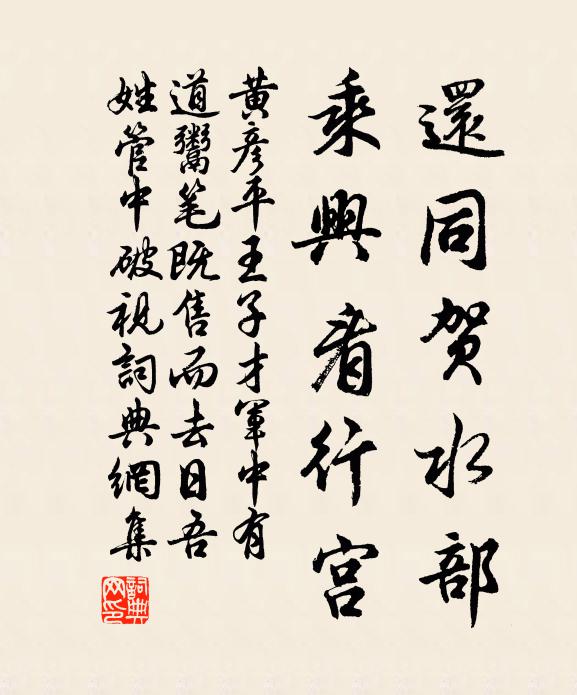 還同賀水部
乘興看行宮
黃彥平王子才軍中有
道鬻笔既售而去日吾
姓管中破視詞典網集
詞典网印